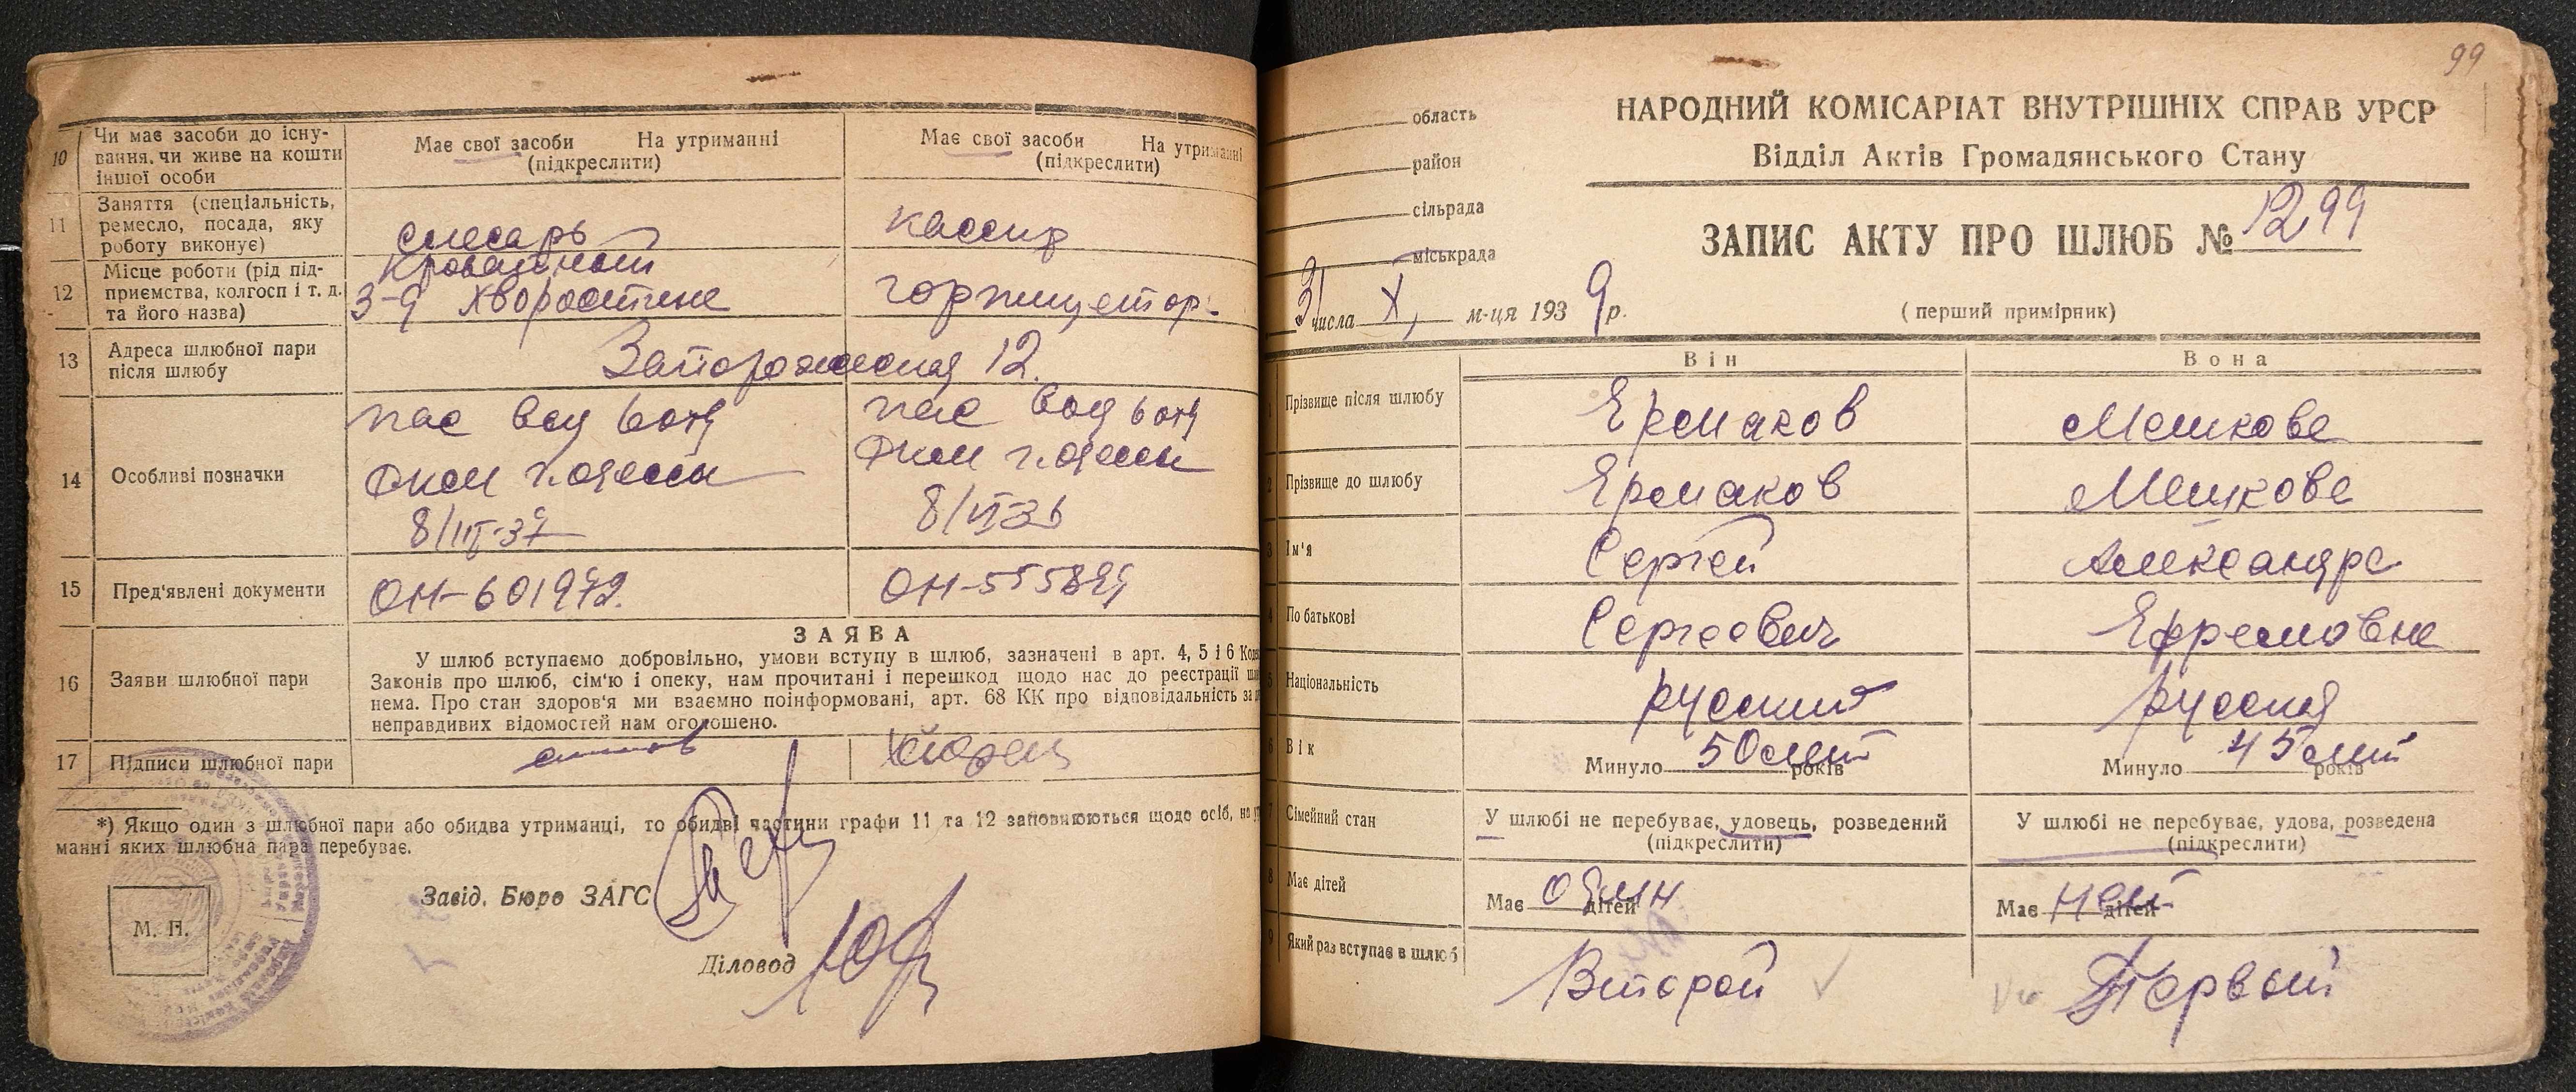 10 Чи має засоби до існу-
вання, чи живе на кошти
іншої особи
Має свої засоби На утриманні
(підкреслити)
Має свої засоби На утриманні
(підкреслити)
11 Заняття (спеціальність,
ремесло, посада, яку
роботу виконує)
слесарь
кассир
12 Місце роботи (рід під-
приємства, колгосп і т. д.
та його назва)
Кроватный
З-д Хворостина
горпищеторг
13 Адреса шлюбної пари
після шлюбу
Запорожская 12.
14 Особливі позначки
пас выд 6 отд
РКМ г. Одессы
8/III-37
пас выд 6 отд
РКМ г. Одессы
8/VI 36
15 Пред'явлені документи
ОН-601972.
ОН-555894
16 Заяви шлюбної пари
ЗАЯВА
У шлюб вступаємо добровільно, умови вступу в шлюб, зазначені в арт. 4, 5 і 6 Коде
Законів про шлюб, сім'ю і опеку, нам прочитані і перешкод щодо нас до реєстрації шл
нема. Про стан здоров'я ми взаємно поінформовані, арт. 68 КК про відповідальність за
неправдивих відомостей нам оголошено.
17 Підписи шлюбної пари
*) Якщо один з шлюбної пари або обидва утриманці, то обидві частини графи 11 та 12 заповнюються щодо осіб, на ут
манні яких шлюбна пара перебуває.
Завід. Бюро ЗАГС
М. П.
Діловод
99
область
район
сільрада
міськрада
31 числа X, м-ця 1939 р.
НАРОДНИЙ КОМІСАРІАТ ВНУТРІШНІХ СПРАВ УРСР
Відділ Актів Громадянського Стану
ЗАПИС АКТУ ПРО ШЛЮБ № 1299
(перший примірник)
Він Вона
1 Прізвище після шлюбу Ермаков Мешкова
2 Прізвище до шлюбу Ермаков Мешкова
3 Ім'я Сергей Александра
4 По батькові Сергеевич Ефремовна
5 Національність русский русская
6 Вік Минуло 50 лет років Минуло 45 лет років
7 Сімейний стан
У шлюбі не перебуває, удовець, розведений
(підкреслити)
У шлюбі не перебуває, удова, розведена
(підкреслити)
8 Має дітей Має один дітей Має нет дітей
9 Який раз вступає в шлюб Второй Первый